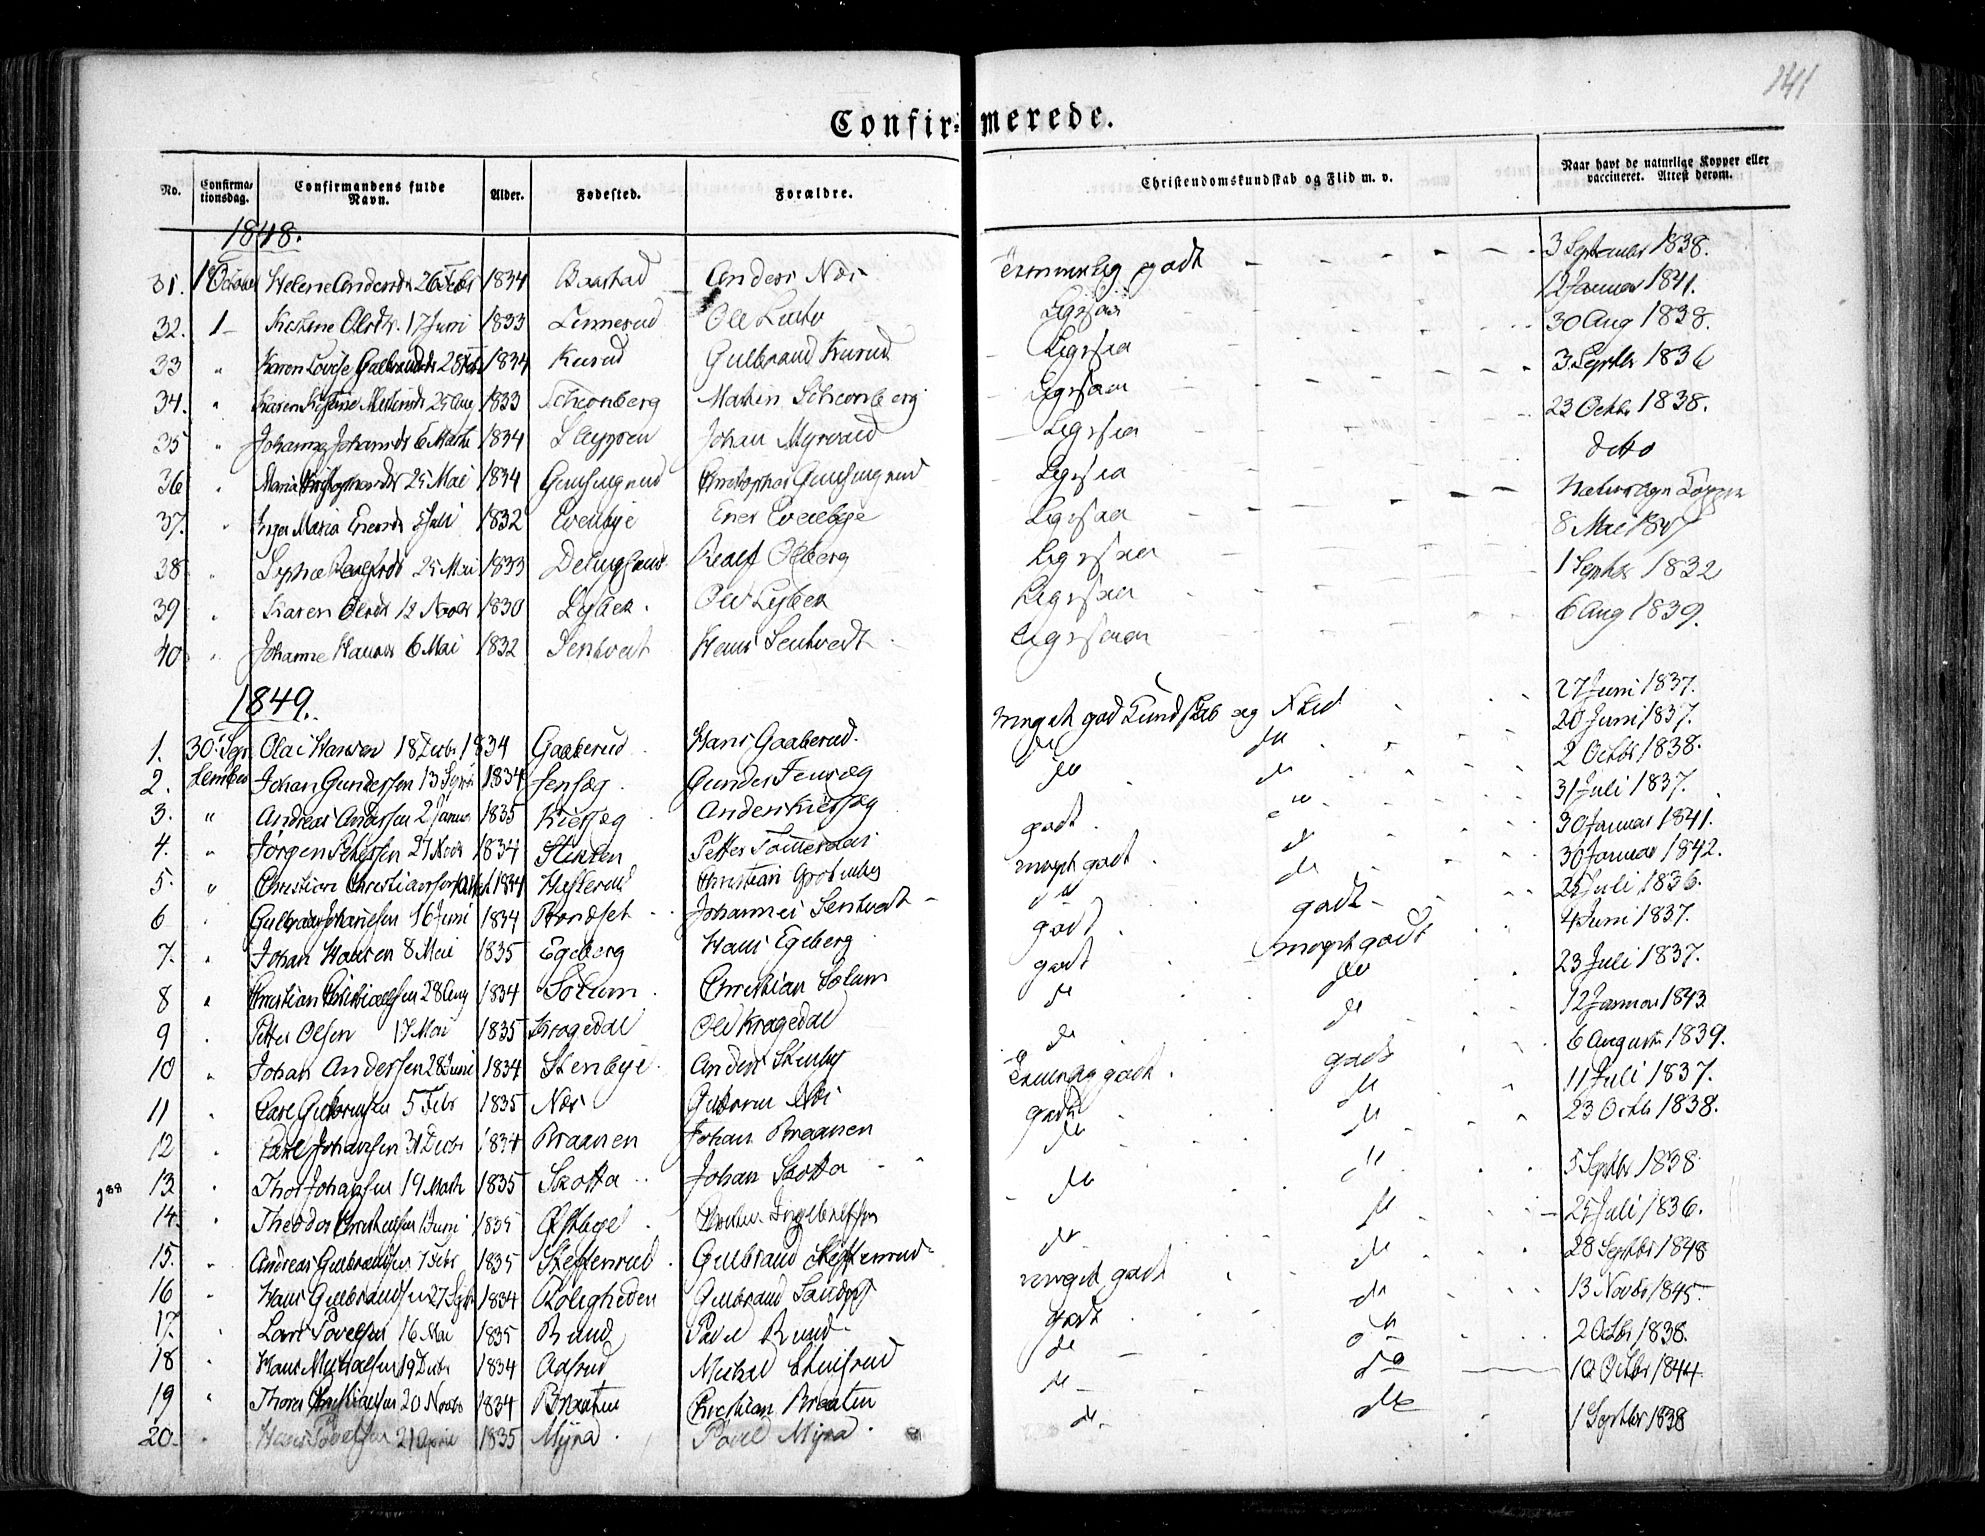 141
Confirmerede.
No. Confirmationsdag. Confirmandens fulde Navn. Alder. Fødested. Forældre. Christendomskundskab og Flid m. v. Naar havt de naturlige Kopper eller vaccineret. Attest derom.
1848.
31. 1 October Helene Andersdr 26 Febr 1834 Baastad Anders Næs temmelig godt 3 September 1838.
32. 1 Kirstine Olsdtr. 17 Juni 1833 Lennerud Ole Ligesaa 12 Januar 1841.
33 " Karen Lovise Gulbrandsdr 28 Febr 1834 Kurud Gulbrand Kurud Ligesaa 30 Aug 1838.
34. " Karen Kirstine 25 Aug 1833 Schionberg Martin Schionberg Ligesaa 3 Septbr 1836
35 " Johanne Johansdr 6 Marts 1834 Johan Myrvold Ligesaa 23 Octbr 1838.
36 " Maria 25 Mai 1834 Christopher Ligesaa ditto
37. " Inger Maria Enersdr 5 Juli 1832 Evenbye Ener Evenbye Ligesaa Naturlige Kopper
38 " Sophie 25 Mai 1833 Olberg Ligesaa 8 Mai 1847
39 " Karen Olsdr 12 Novbr 1830 Lybek. Ole Lybek Ligesaa 1 Septbr 1832
40 " Johanne Hansdr 6 Mai 1832 Sentvedt Hans Sentvedt Ligesaa 6 Aug 1839.
1849.
1. 30. Sep- Olai Hansen 18 Decbr 1834 Gaaberud Hans Gaaberud. meget god Kundskab og Flid 27 Juni 1837.
2. tember Johan Gundersen 13 Septbr 1834 Fensæg. Gunder Fensæg do do 20 Juni 1837.
3. " Andreas Andersen 2 Januar 1835 Kiessæg Anders Kiessæg do do 2 Octbr 1838.
4. " Jørgen Pettersen 27 Novbr 1834 Slitten Petter godt " 31 Juli 1837.
5. " Christian Christiansen 1834 Hesterud Christian meget godt do 30 Januar 1841.
6 " Gulbrand Johannesen 16 Juni 1834 Bondset Johannes Sentvedt do do 30 Januar 1842.
7. " Johan Hansen 8 Mai 1835 Egeberg Hans Egeberg godt godt 25 Juli 1836.
8 " Christian Christiansen 28 Aug 1834 Solum Christian Solum godt meget godt 4 Juni 1837.
9 " Petter Olsen 17 Mai 1835 Kragedal Ole Kragedal do do 23 Juli 1837.
10 " Johan Andersen 28 Juni 1834 Stenbye. Anders Stenby do do 12 Januar 1843
11 " Carl Gulbransen 5 Febr 1835 Næs Gulbran Næs temmelig godt godt 6 August 1839.
12 " Carl Johansen 31 Decbr 1834 Braanen Johan Braanen godt do 11 Juli 1837.
13 " Thor Johansen 19 Marts 1835 Skotta Johan Skotta do do 23 Octbr 1838.
14. " Theodor Christensen 1 Juni 1835 do do 5 Septbr 1838
15. " Andreas Gulbrandsen 7 Febr 1835 Steffenrud Gulbrand Steffenrud do do 25 Juli 1836.
16 " Hans Gulbrandsen 27 Septbr 1834 Roligheden Gulbrand meget godt do 28 Septbr 1848
17. " Lars Povelsen 16 Mai 1835 Rund Povel Rund godt do 13 Novbr 1845.
18 " Hans Mikkelsen 19 Decbr 1834 Mickel do do 2 Octbr 1838.
19 " Thorer Christiansen 20 Novbr 1834 Braaten Christian Braaten do do 10 Octbr 1844
20. " Hans Povelsen 21 April 1835 Myra Povel Myra do do 1 Septbr 1838